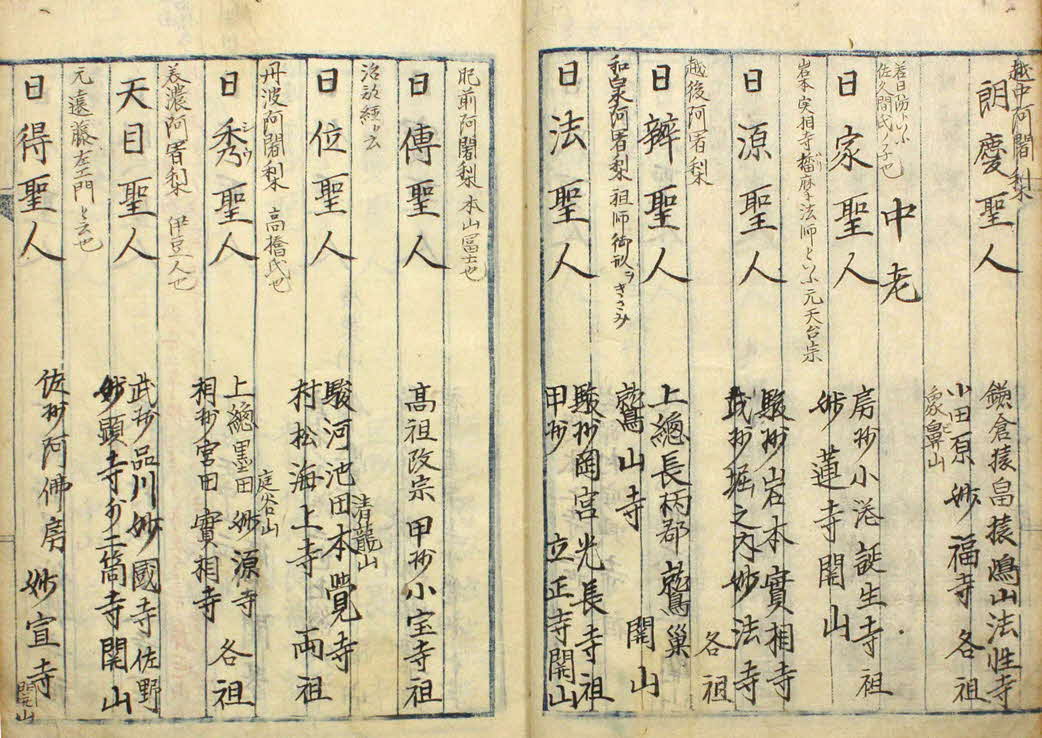 越中阿闍梨
朗慶聖人
鎌倉猿畠猿嶋山法性寺
小田原妙福寺 各祖
象鼻山
中老
若日防トいふ
佐久間氏ノ子也
日家聖人
房州小港誕生寺祖
妙蓮寺開山
岩本実相寺播磨法師といふ元天台宗
日源聖人
駿州岩本實相寺
武州堀之内妙法寺
各祖
越後阿闍梨
日辨聖人
上總長柄郡鷲巣
鷲山寺 開山
和泉阿闍梨 祖師御影ヲきさみ
日法聖人
駿州岡宮光長寺祖
甲州 立正寺開山
肥前阿闍梨 本山冨士也
日傳聖人
高祖改宗甲州小室寺祖
治部
日位聖人
清龍山
駿河池田本覺寺
村松海上寺 両祖
丹波阿闍梨 高橋氏也
日秀聖人
シウ
庭谷山
上總墨田妙源寺
相州宮田實相寺 各祖
美濃阿闍梨 伊豆人也
天目聖人
武州品川妙國寺佐野
妙顕寺外二箇寺開山
元遠藤左エ門と云也
日得聖人
佐州阿佛房 妙宣寺
開山